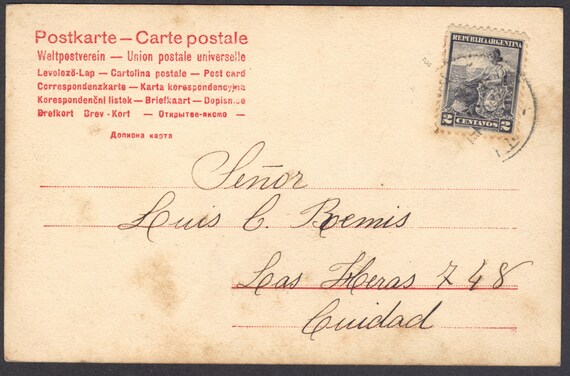 Postkarte — Carte postale
Weltpostverein — Union postale universelle
Levelező-Lap — Cartolina postale — Post card
Correspondenzkarte — Karta korespondencyjna
Korespondenční listok — Briefkaart — Dopisnice
Brefkort Brev-Kort — Открытое-письмо —
Дописна карта
REPUBLICA ARGENTINA
2 CENTAVOS 2
Señor
Luis C. Bemis
Las Heras 748
Cuidad